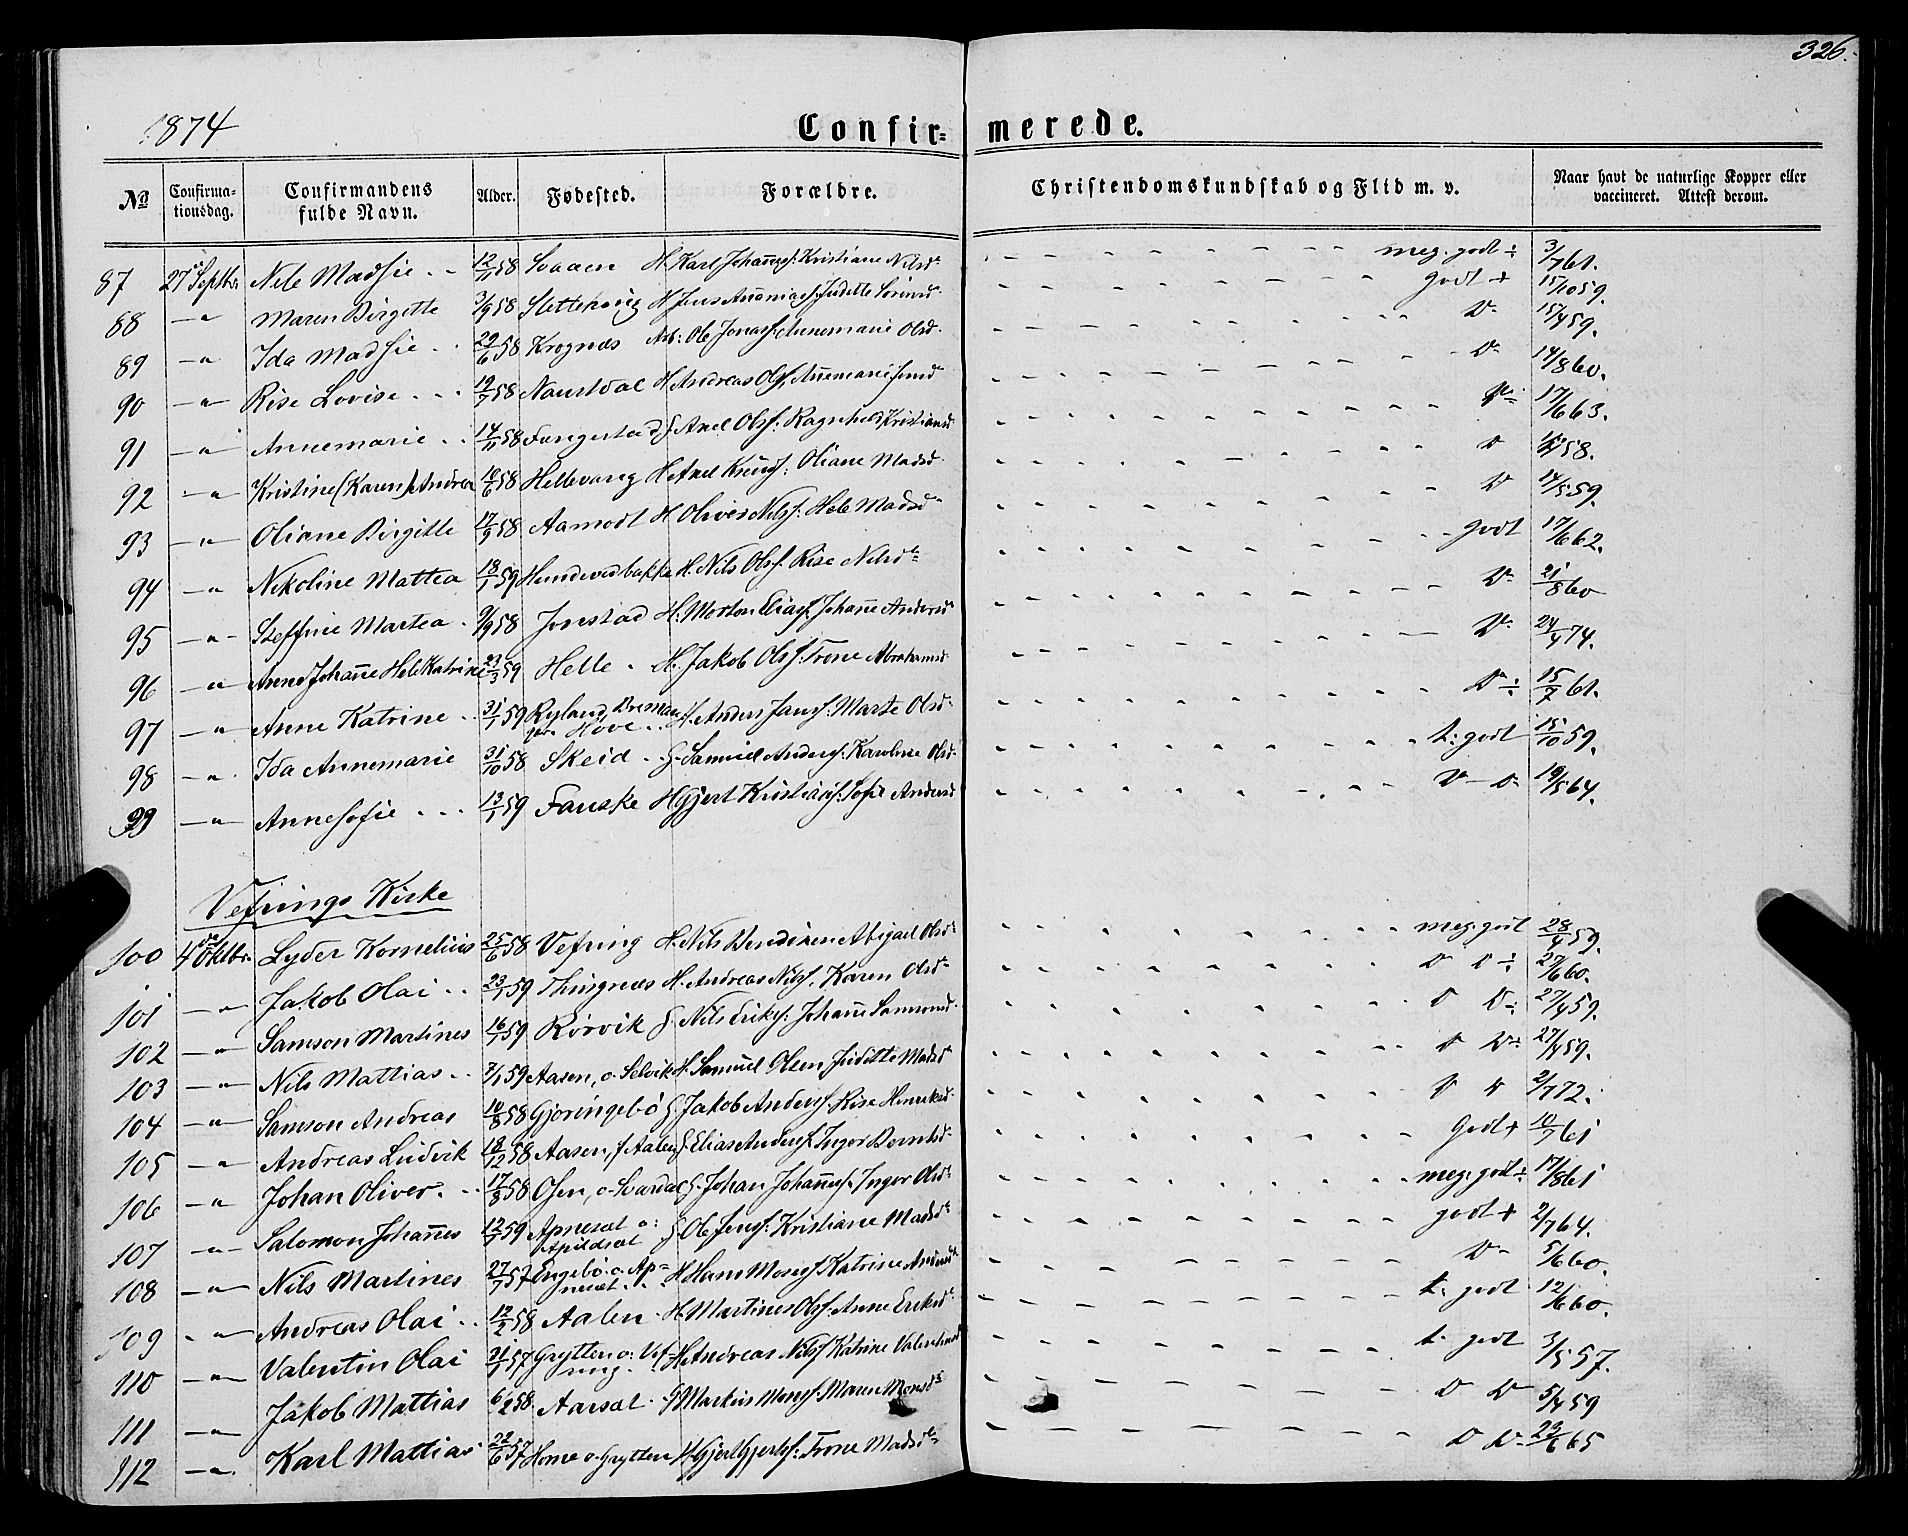 326.
1874
Confirmerede.
No Confirmationsdag. Confirmandens fulde Navn. Alder. Fødested. Forældre. Christendomskundskab og Flid m. v. Naar havt de naturlige Kopper eller vaccineret. Attest derom.
87 27 Septbr Nele Madsie 12/11 58 Svaaen H. Karl Johannes. Kristiane Nilsd meg. godt ÷ 3/7 61.
88 -"- Maren Birgitte 3/9 58 Slettehaug H Jens Ananias. Juditte godt + 15/10 59.
89 -"- Ida Madsie 29/6 58 Krognæs Arb: Ole Jonas. Annemarie Olsd. D 15/4 59.
90 -"- Rise Lovise 19/7 58 Naustdal H Andreas Ols. Annemarie D 14/8 60.
91 -"- Annemarie 14/11 58 G Axel Ols. Ragnhild Kristiansd 17/6 63.
92 -"- Kristine (Karen) Andrea 10/6 58 Hellevang H Axel Oliane Madsd. D 58.
93 -"- Oliane Birgitte 17/9 58 Aamodt H Oliver Nils. Hele Madsd D 17/5 59.
94 -"- Nikoline Mattea 18/1 59 H. Nils Ols. Rise Nilsd godt 17/6 62.
95 -"- Steffine Martea 9/9 58 Jonstad H. Morten Elias. Johanne Andersd D 21/8 60
96 -"- Anne Johanne Hele Katrine 23/3 59 Helle H. Jakob Ols. Trone Abrahamsd D 24/4 74.
97 -"- Anne Katrine 31/1 59 Ryland Hove H. Anders Jans. Marte Olsd D ÷ 15/7 61.
98 -"- Ida Annemarie 31/10 58 Skeid G Samuel Anders. Karoline Olsd t. godt 15/10 59.
99 -"- Annesofie 13/1 59 Fauske H Gjert Kristians. Sofie Andersd D - D 19/5 64.
Vefrings Kirke
100 4de Oktbr. Lyder Kornelius 25/6 58 Vefring H. Nils Bendixen Abigael Olsd meg. godt 28/4 59.
101 -"- Jakob Olai 23/1 59 Thingnæs H. Andreas Nils. Karen Olsd D D ÷ 27/6 60.
102 -"- Samson Martines 16/1 59 Rørvik G. Nils Eriks. Johanne Samsonsd. D D ÷ 27/4 59.
103 -"- Nils Mattias 7/1 59 Aasen, o. Selvik H. Samuel Olsen Juditte Madsd D D ÷ 27/4 59.
104 -"- Samson Andreas 10/8 58 Gjøringebø G. Jakob Anders. Rise Henriksd D D 2/7 72.
105 -"- Andreas Ludvik 18/12 58 Aasen, f Aalen G. Elias Anders. Inger godt + 10/7 61
106 -"- Johan Oliver 17/8 58 Osen, o. Svardal G. Johan Johannes. Inger Olsd meg. godt ÷ 17/8 61
107 -"- Salomon Johannes 12/1 59 Apnesæt o: Apildsæt G Ole Jens. Kristiane Madsd godt + 2/7 64.
108 -"- Nils Martines 27/7 57 Engebø. o. Apnesæt H Hans Mons. Katrine D 5/6 60.
109 -"- Andreas Olai 12/2 58 Aalen H. Martines Ols. Anne Eriksd t. godt 12/6 60.
110 -"- Valentin Olai 31/1 57 Grytten o: Vefring H. Andreas Nils. Katrine t. godt 3/5 57.
111 -"- Jakob Mattias 6/2 58 Aarsæt G Markus Mons. Maren Monsd D D 5/4 59
112 -"- Karl Mattias 22/6 57 Horne o. Grytten H Gjert Gjerts. Trone Madsd D D 23/6 65